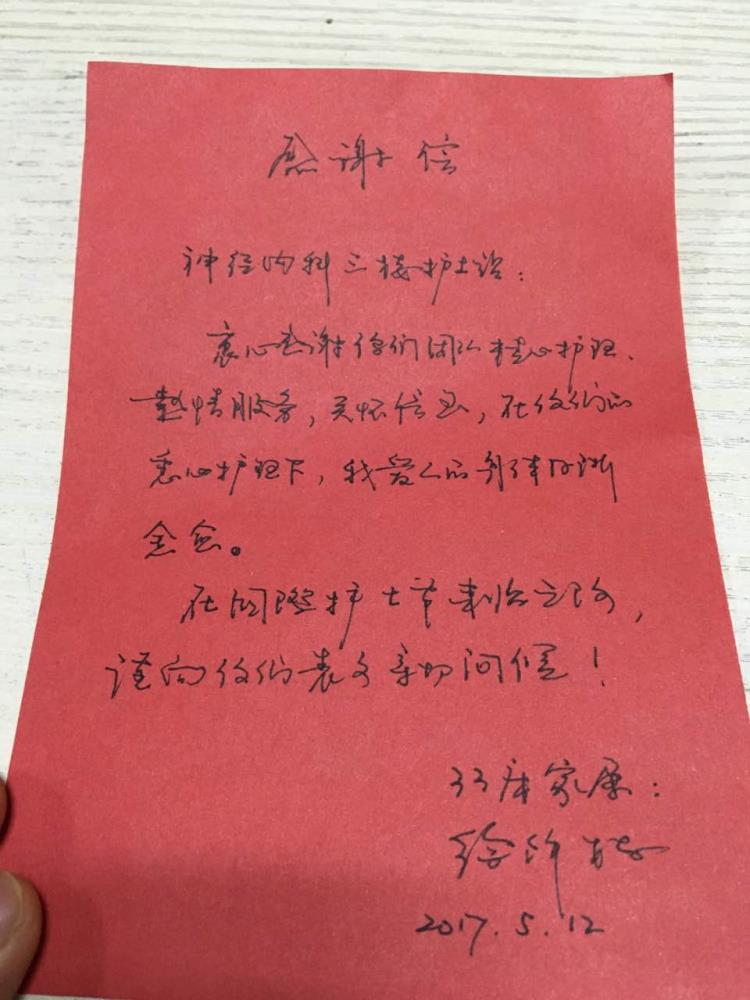 感谢信
神经内科三楼护士站：
衷心感谢你们团队精心护理、
热情服务，关怀备至，在你们的
悉心护理下，我爱人的身体日渐
全愈。
在国际护士节来临之际，
谨向你们表示亲切问候！
33床家属：
2017.5.12